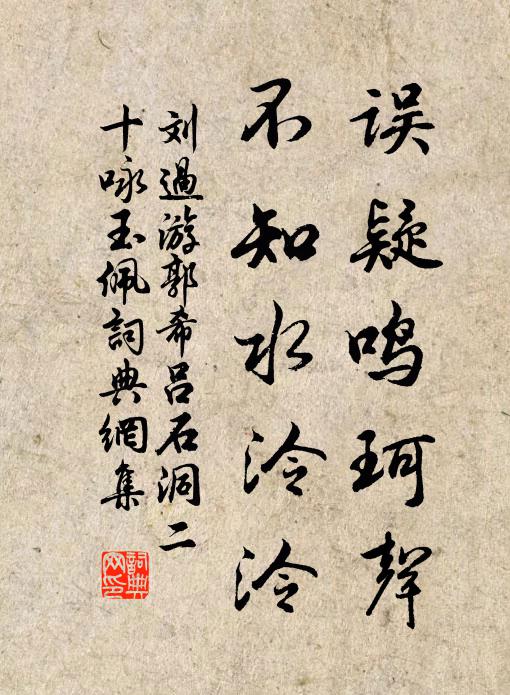 误疑鸣珂聲
不知水泠泠
刘過游郭希吕石洞二
十咏玉佩詞典網集
詞典网印